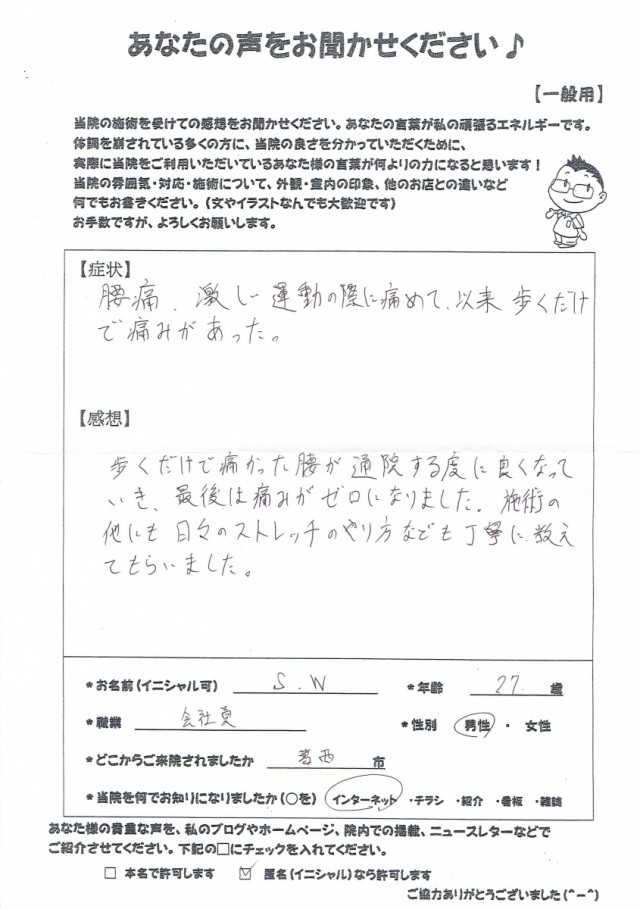 あなたの声をお聞かせください♪
【一般用】
当院の施術を受けての感想をお聞かせください。あなたの言葉が私の頑張るエネルギーです。
体調を崩されている多くの方に、当院の良さを分かっていただくために、
実際に当院をご利用いただいているあなた様の言葉が何よりの力になると思います！
当院の雰囲気・対応・施術について、外観・室内の印象、他のお店との違いなど
何でもお書きください。（文やイラストなんでも大歓迎です）
お手数ですが、よろしくお願いします。
【症状】
腰痛、激しい運動の際に痛めて、以来 歩くだけ
で痛みがあった。
【感想】
歩くだけで痛かった腰が通院する度に良くなって
いき、最後は痛みがゼロになりました。施術の
他にも日々のストレッチのやり方なども丁寧に教え
てもらいました。
*お名前（イニシャル可） S.W *年齢 27 歳
*職業 会社員 *性別 男性 ・ 女性
*どこからご来院されましたか 葛西 市
*当院を何でお知りになりましたか（○を） インターネット ・チラシ ・紹介 ・看板 ・雑誌
あなた様の貴重な声を、私のブログやホームページ、院内での掲載、ニュースレターなどで
ご紹介させてください。下記の□にチェックを入れてください。
□ 本名で許可します ☑ 匿名（イニシャル）なら許可します
ご協力ありがとうございました（^－^）